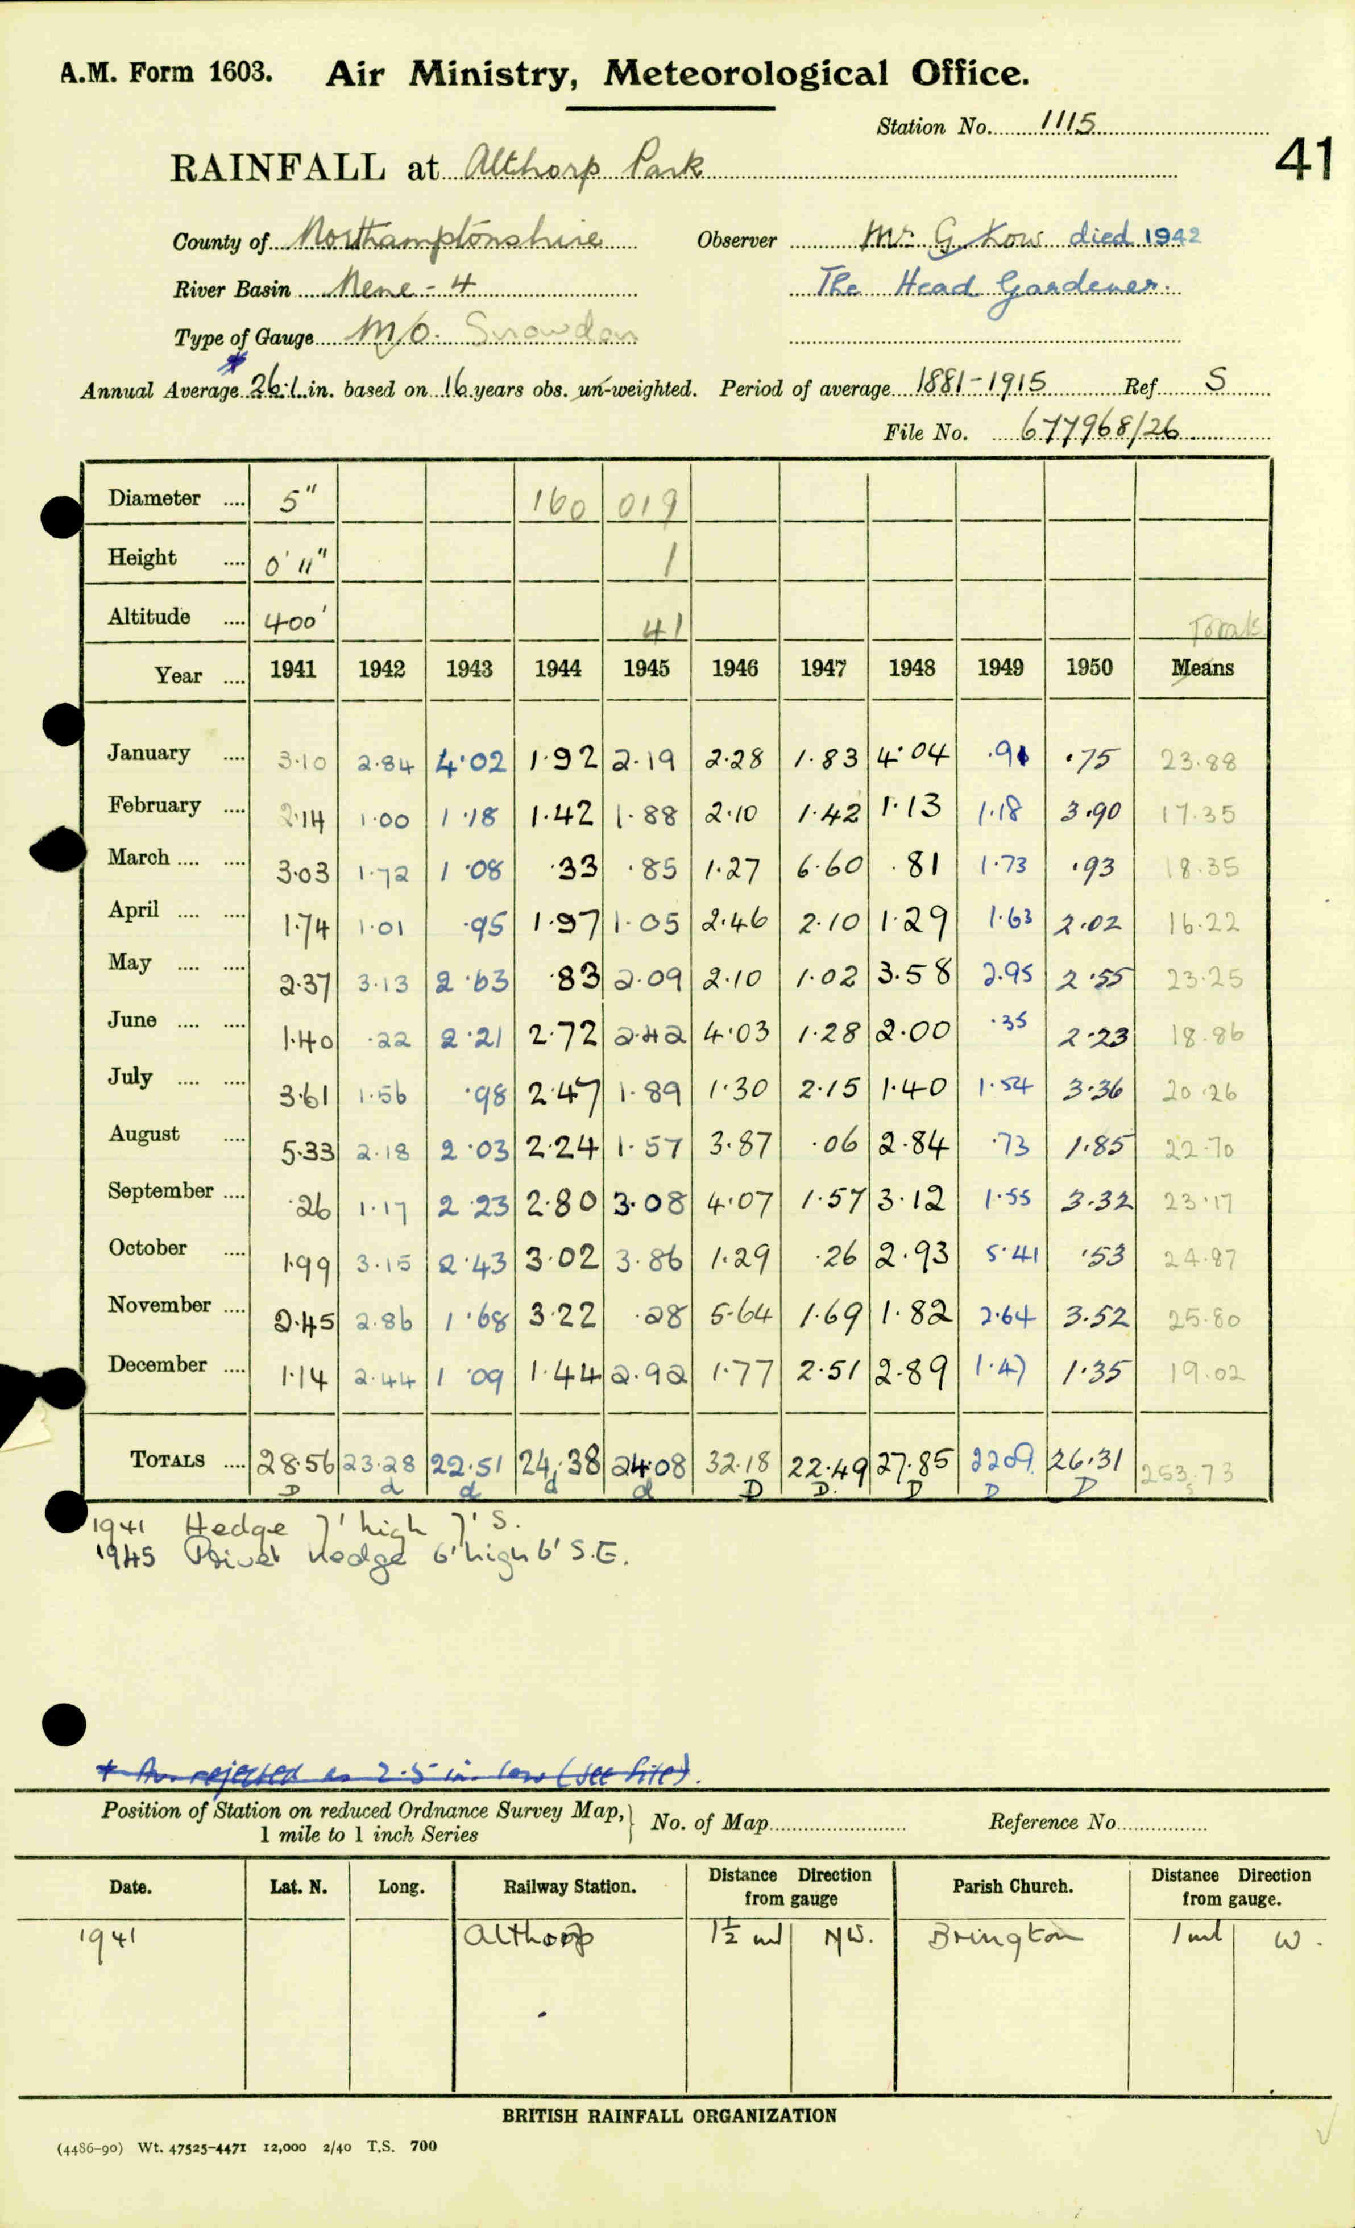 A.M. Form 1603. Air Ministry, Meteorological Office.
Station No. 1115
41
RAINFALL at Althorp Park
County of Northamptonshire Observer Mr G. Low died 1942
River Basin Nene - 4 The Head Gardener.
Type of Gauge M/O. Snowdon
Annual Average * 26.1 in. based on 16 years obs. un-weighted. Period of average 1881-1915 Ref S
File No. 677968/26
Diameter .... 5" 160 019
Height .... 0' 11" 1
Altitude .... 400' 41 Totals
Year .... 1941 1942 1943 1944 1945 1946 1947 1948 1949 1950 Means
January .... 3.10 2.84 4.02 1.92 2.19 2.28 1.83 4.04 .91 .75 23.88
February .... 2.14 1.00 1.18 1.42 1.88 2.10 1.42 1.13 1.18 3.90 17.35
March .... .... 3.03 1.72 1.08 .33 .85 1.27 6.60 .81 1.73 .93 18.35
April .... .... 1.74 1.01 .95 1.97 1.05 2.46 2.10 1.29 1.63 2.02 16.22
May .... .... 2.37 3.13 2.63 .83 2.09 2.10 1.02 3.58 2.95 2.55 23.25
June .... .... 1.40 .22 2.21 2.72 2.42 4.03 1.28 2.00 .35 2.23 18.86
July .... .... 3.61 1.56 .98 2.47 1.89 1.30 2.15 1.40 1.54 3.36 20.26
August .... 5.33 2.18 2.03 2.24 1.57 3.87 .06 2.84 .73 1.85 22.70
September .... .26 1.17 2.23 2.80 3.08 4.07 1.57 3.12 1.55 3.32 23.17
October .... 1.99 3.15 2.43 3.02 3.86 1.29 .26 2.93 5.41 .53 24.87
November .... 2.45 2.86 1.68 3.22 .28 5.64 1.69 1.82 2.64 3.52 25.80
December .... 1.14 2.44 1.09 1.44 2.92 1.77 2.51 2.89 1.47 1.35 19.02
TOTALS .... 28.56 23.28 22.51 24.38 24.08 32.18 22.49 27.85 22.09 26.31 253.73
D d d d d D D. D D D s
1941 Hedge 7' high 7' S.
1945 Privet hedge 6' high 6' S.E.
* Av. rejected as 2.5 in. low (see file).
Position of Station on reduced Ordnance Survey Map, } No. of Map Reference No.
1 mile to 1 inch Series
Date. Lat. N. Long. Railway Station. Distance Direction from gauge Parish Church. Distance Direction from gauge.
1941 Althorp 1½ ml NW. Brington 1 ml W.
BRITISH RAINFALL ORGANIZATION
(4486-90) Wt. 47525-4471 12,000 2/40 T.S. 700